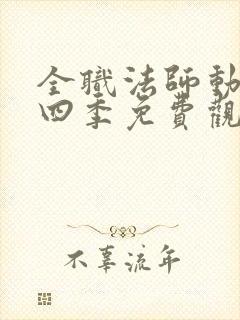 全職法師動
四季免費觀
不辜流年